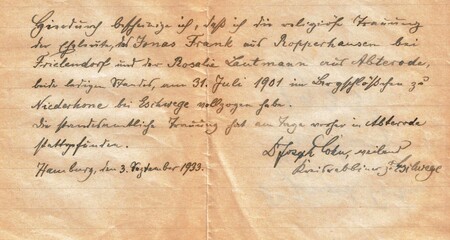 Hierdurch bescheinige ich, daß ich die religiöse Trauung
der Eheleute, des Jonas Frank aus Ropperhausen bei
Frielendorf und der Rosalie Lautmann aus Abterode,
beide ledigen Standes, am 31. Juli 1901 im Bergschlößchen zu
Niederhone bei Eschwege vollzogen habe.
Die standesamtliche Trauung hat am Tage vorher in Abterode
stattgefunden.
Hamburg, den 3. September 1933.
Dr Joseph Cohn, weiland
Kreisrabbiner z. Eschwege